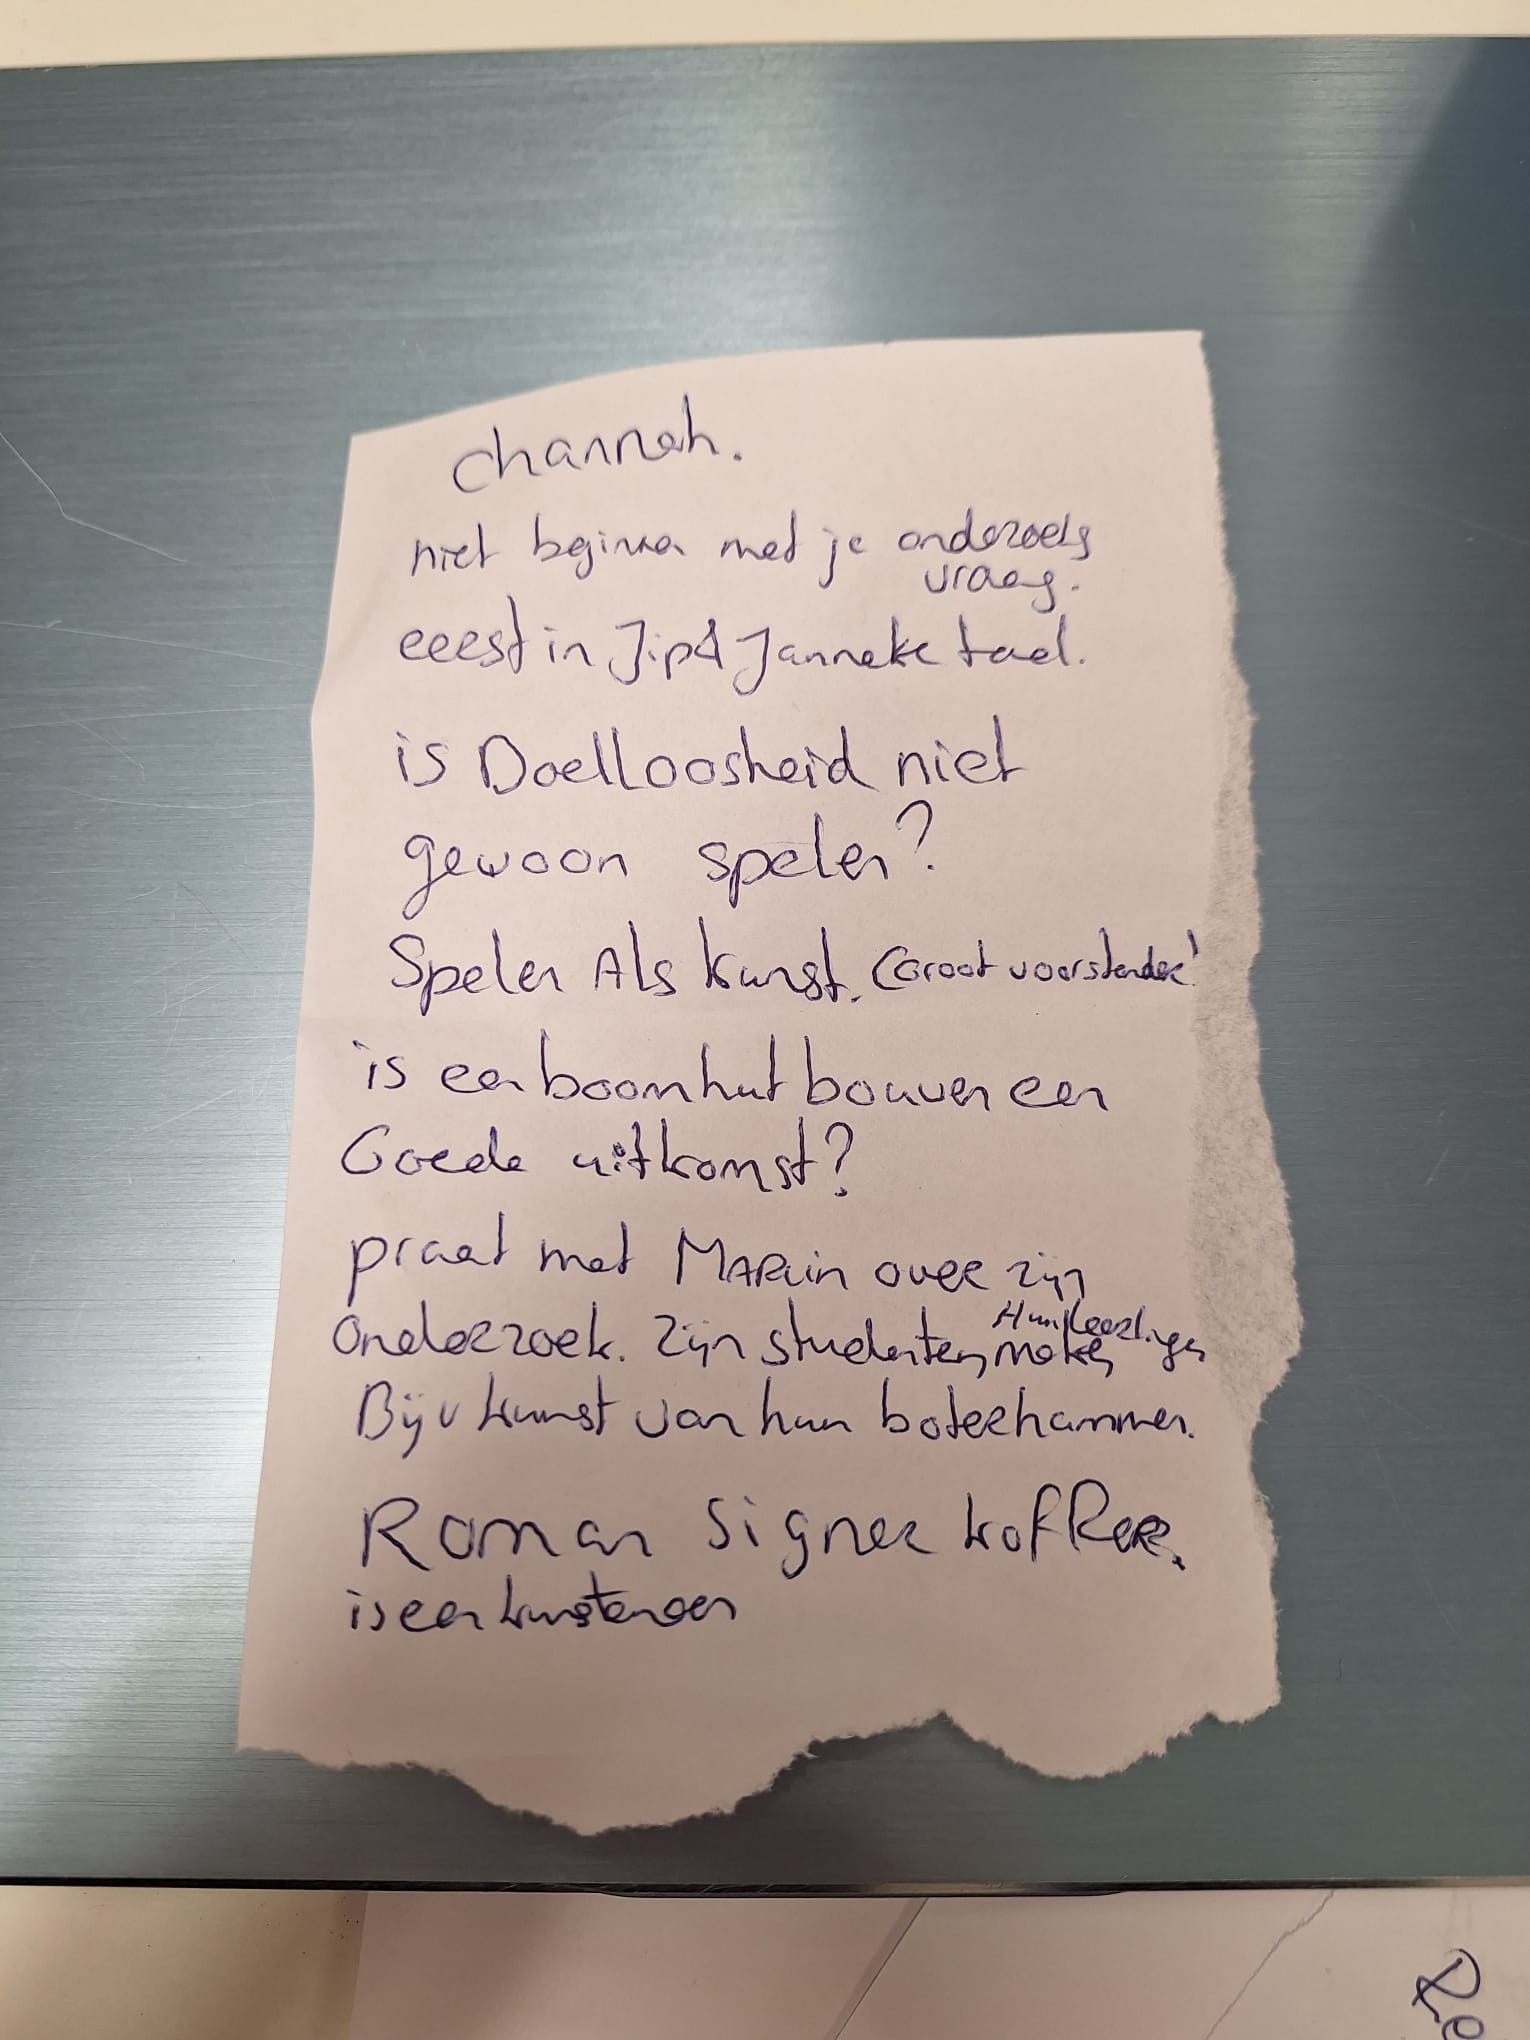 Channah.
niet beginnen met je onderzoeks
vraag.
eerst in Jip & Janneke taal.
is Doelloosheid niet
gewoon spelen?
Spelen Als kunst. (Groot voorstander!
is een boomhut bouwen een
Goede uitkomst?
praat met MARvin over zijn
Hun leerlingen
onderzoek. Zijn studenten, maken
Bijv kunst van hun boterhammen.
Roman Signer koffer.
is een kunstenaar
Re